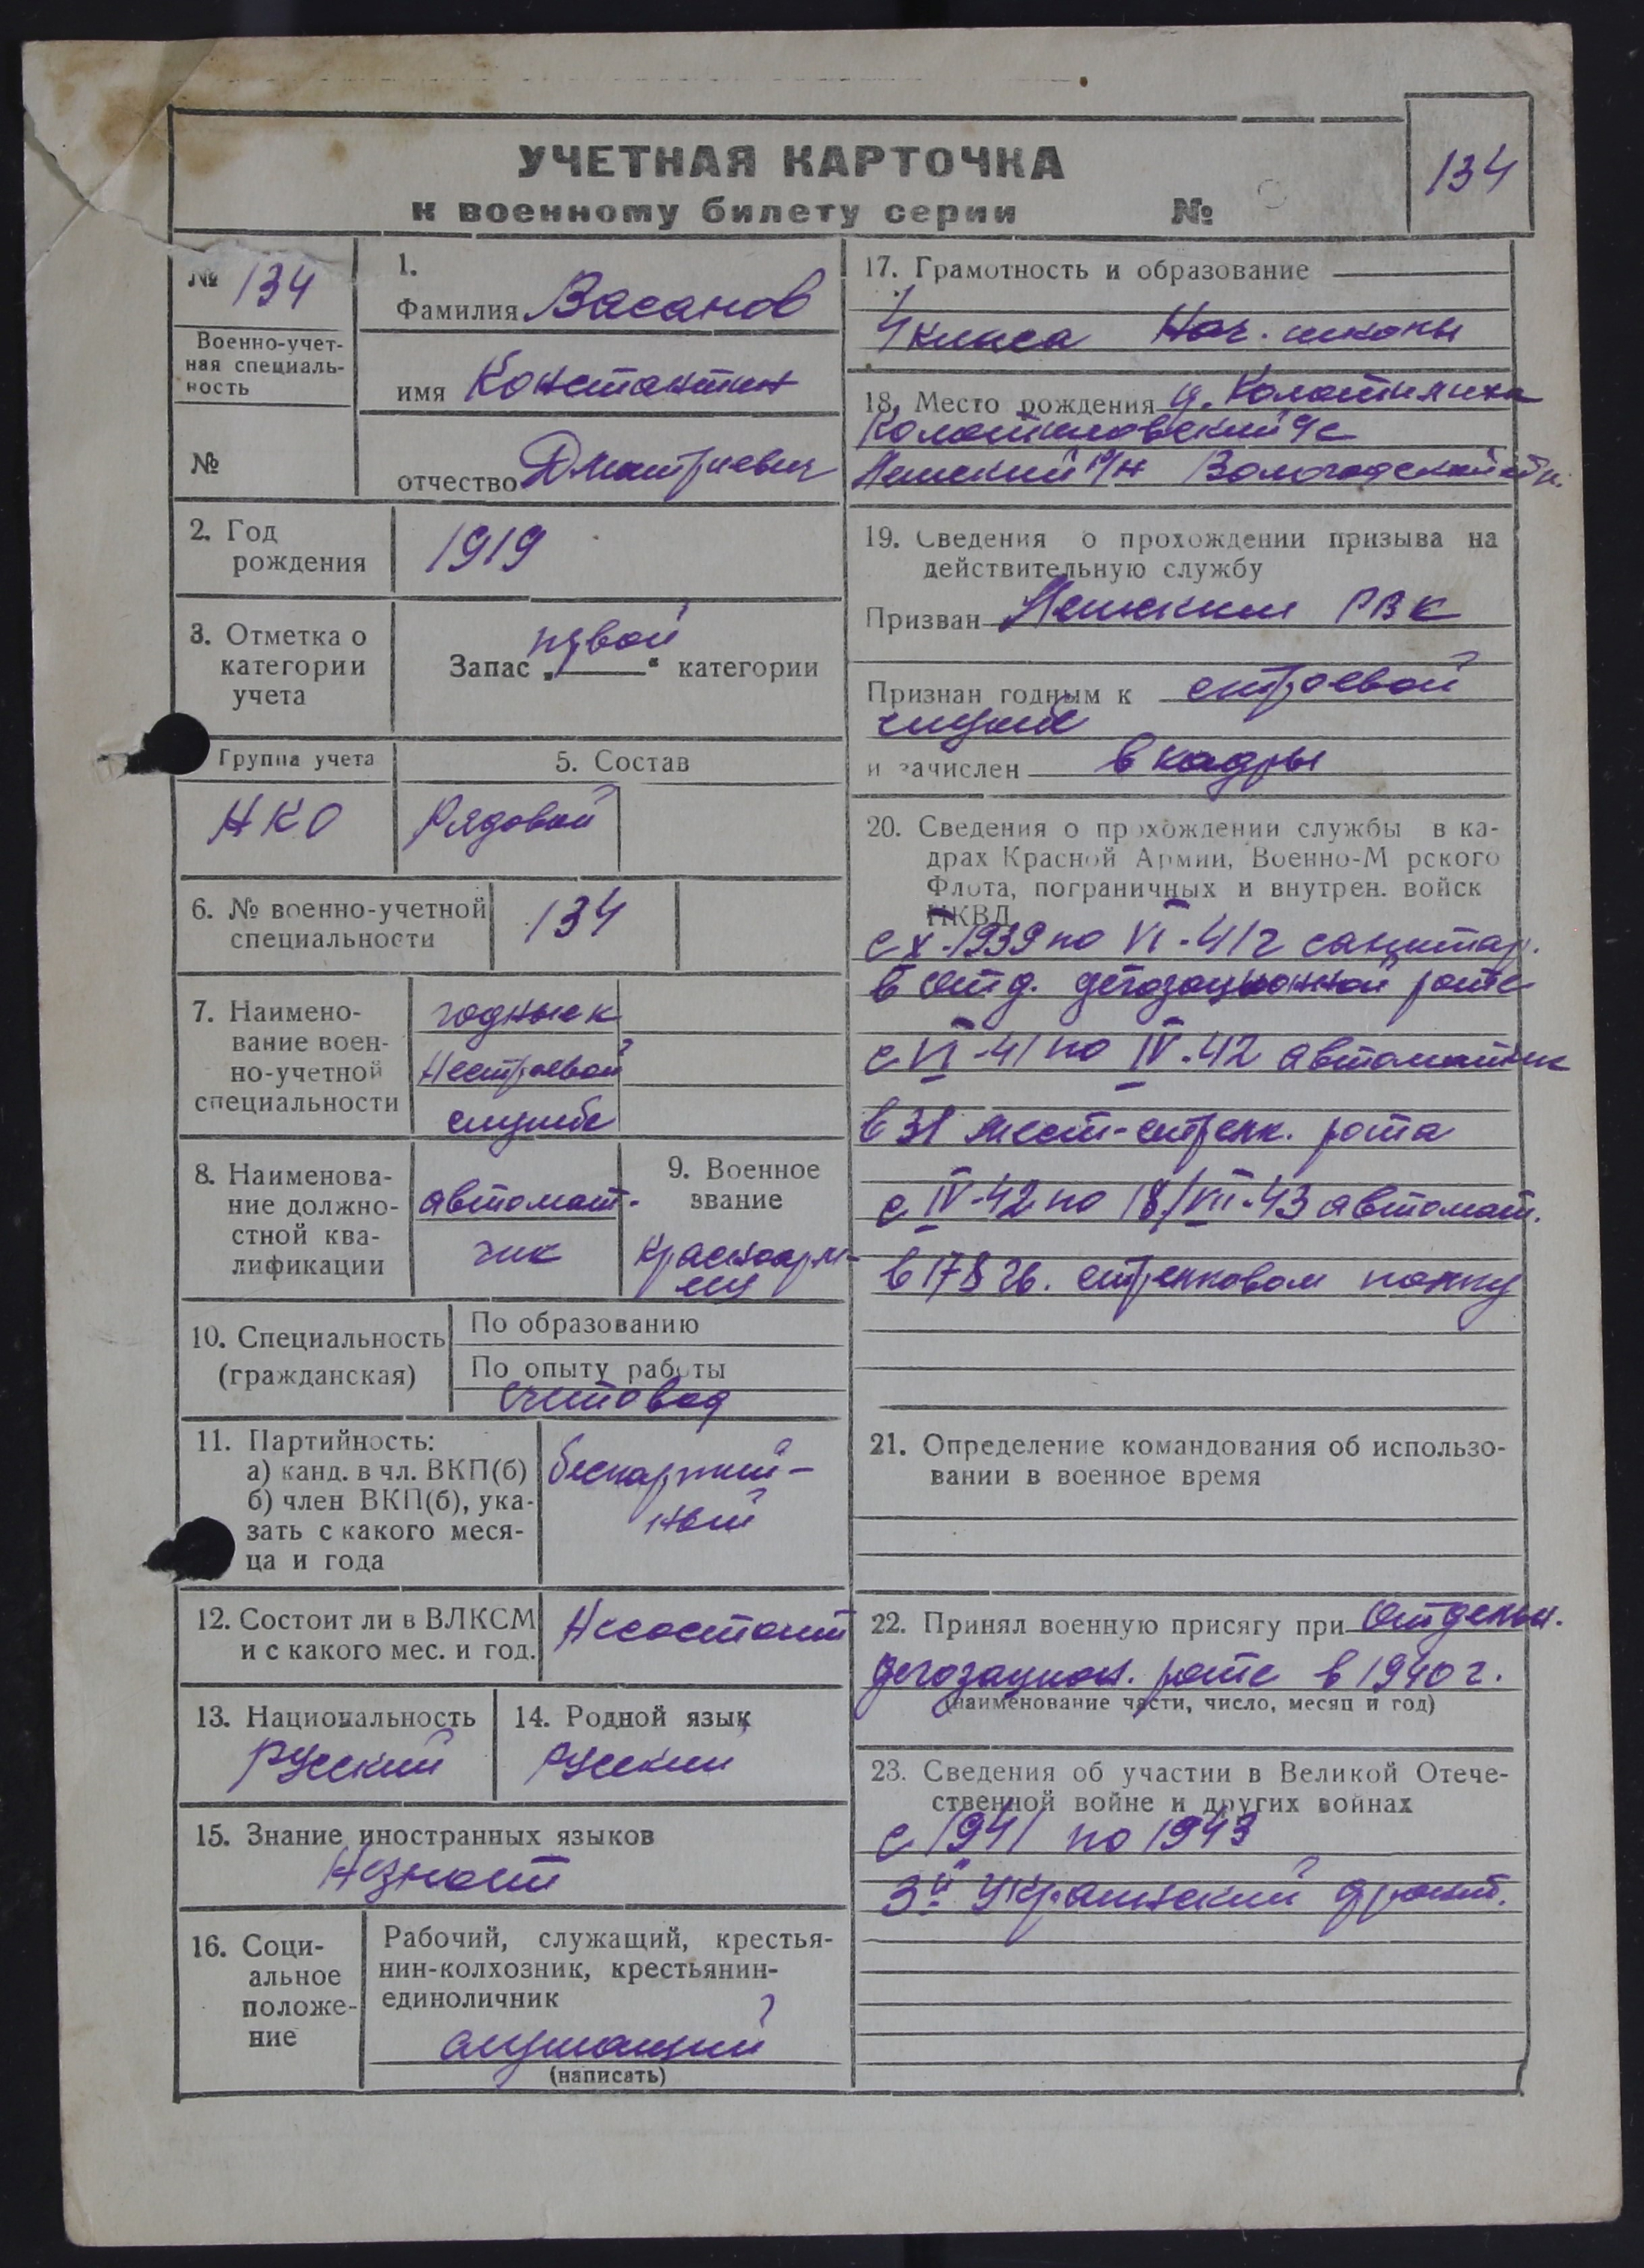 УЧЕТНАЯ КАРТОЧКА
к военному билету серии №
134
№ 134
Военно-учет-
ная специаль-
ность
№
1.
Фамилия Васанов
имя Константин
отчество Дмитриевич
2. Год
рождения
1919
3. Отметка о
категории
учета
Запас „первой“ категории
Группа учета
НКО
5. Состав
Рядовой
6. № военно-учетной
специальности
134
7. Наимено-
вание воен-
но-учетной
специальности
годные к
нестроевой
службе
8. Наименова-
ние должно-
стной ква-
лификации
автомат-
чик
9. Военное
звание
красноарм-
еец
10. Специальность
(гражданская)
По образованию
По опыту работы
счетовод
11. Партийность:
а) канд. в чл. ВКП(б)
б) член ВКП(б), ука-
зать с какого меся-
ца и года
беспартий-
ный
12. Состоит ли в ВЛКСМ
и с какого мес. и год.
Несостоит
13. Национальность
Русский
14. Родной язык
Русский
15. Знание иностранных языков
Незнает
16. Соци-
альное
положе-
ние
Рабочий, служащий, крестья-
нин-колхозник, крестьянин-
единоличник
служащий
(написать)
17. Грамотность и образование
4 класса Нач. школы
18. Место рождения д.
с/с
р/н Вологодской обл.
19. Сведения о прохождении призыва на
действительную службу
Призван РВК
Признан годным к строевой
службе
и зачислен в кадры
20. Сведения о прохождении службы в ка-
драх Красной Армии, Военно-Морского
Флота, пограничных и внутрен. войск
НКВД
с X-1939 по VI-41г санитар.
в отд. дегазационной роте
с VI-41 по IV-42 автоматчик
в 31 мест-стрелк. рота
с IV-42 по 18/VII-43 автомат.
в 178 гв. стрелковом полку
21. Определение командования об использо-
вании в военное время
22. Принял военную присягу при Отдельн.
дегазацион. роте в 1940 г.
(наименование части, число, месяц и год)
23. Сведения об участии в Великой Отече-
ственной войне и других войнах
с 1941 по 1943
3й Украинский фронт.